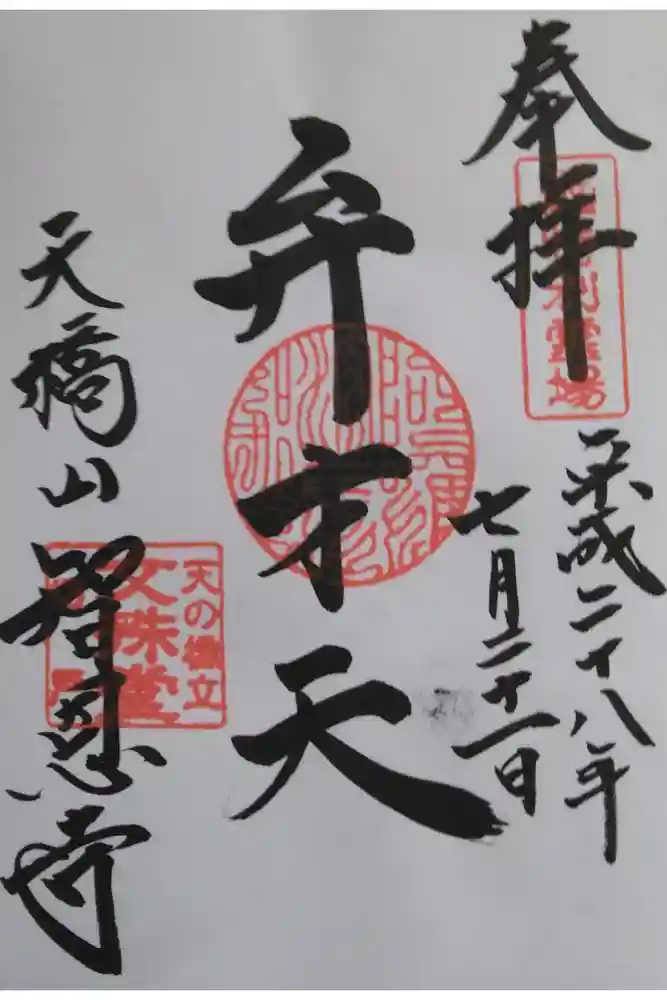 奉拝
利霊場
平成二十八年
七月二十一日
弁才天
天橋山
智恩寺
天の橋立
文殊堂